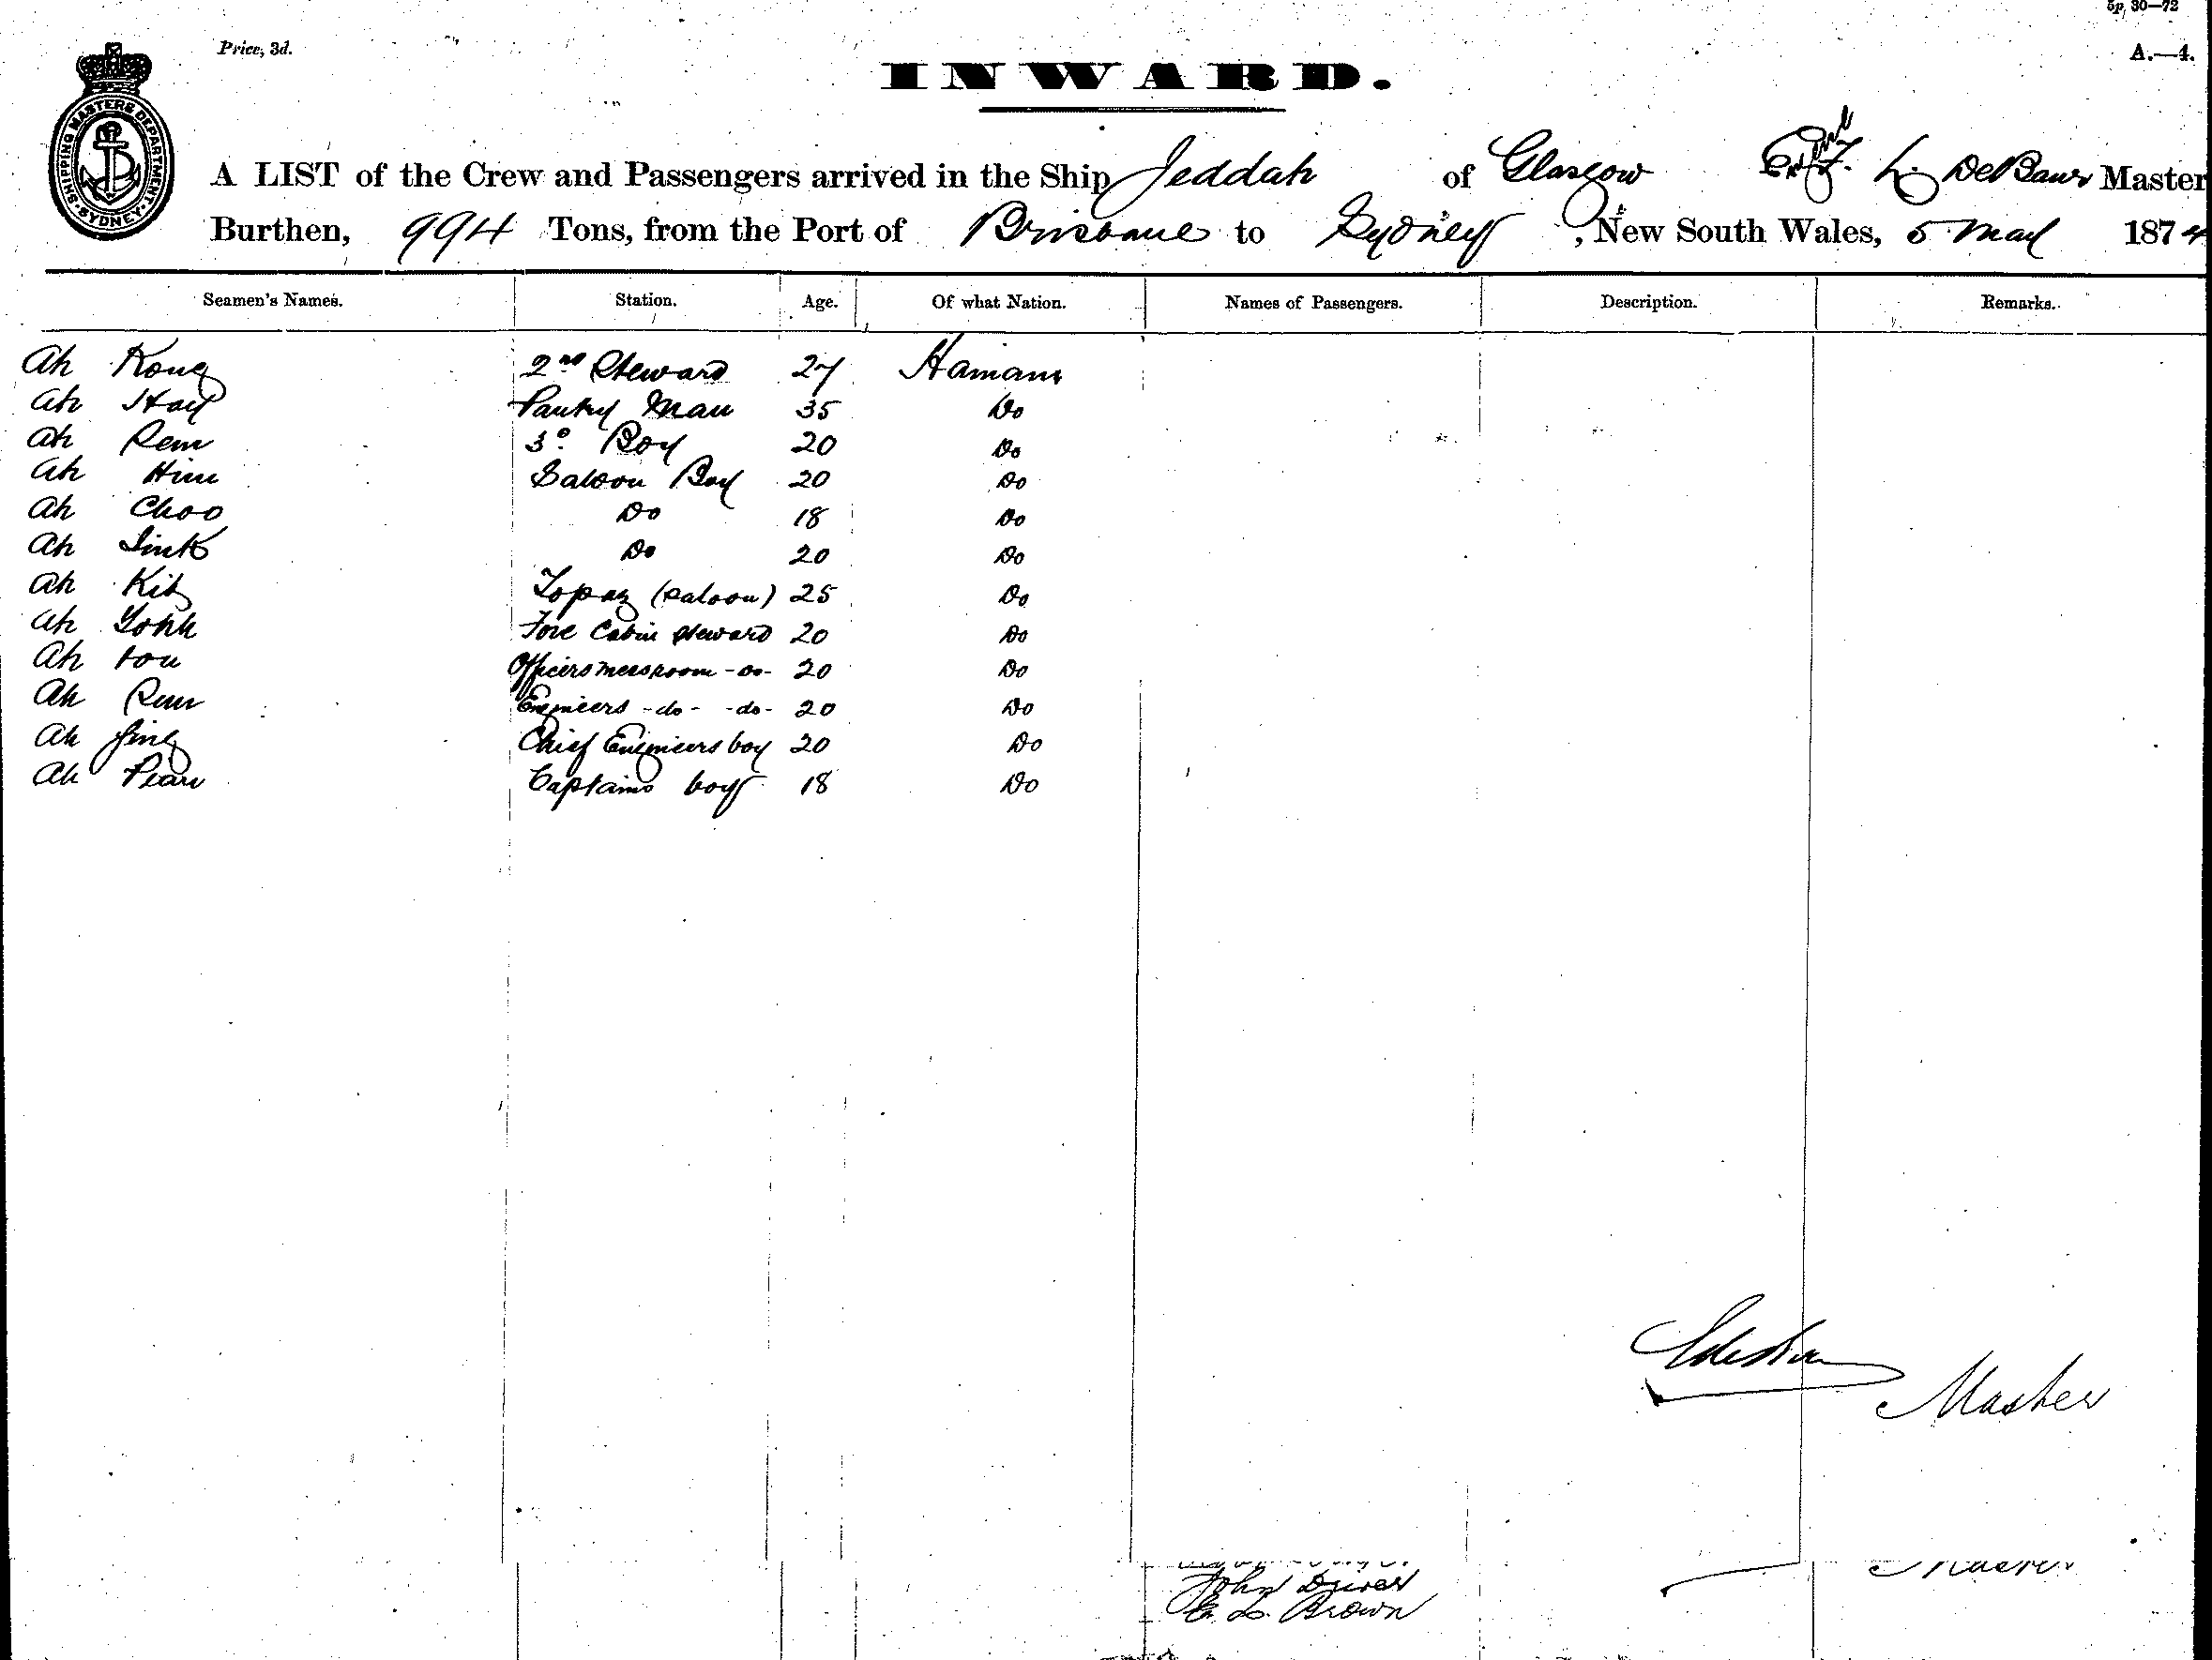 5p, 30—72
Price, 3d.
A.—4.
INWARD.
SHIPPING MASTERS DEPARTMENT · SYDNEY ·
A LIST of the Crew and Passengers arrived in the Ship Jeddah of Glasgow Master
Burthen, 994 Tons, from the Port of Brisbane to Sydney, New South Wales, 5 May 1874
Seamen's Names. Station. Age. Of what Nation. Names of Passengers. Description. Remarks.
Ah Kong 2nd Steward 27
Ah Hoy Pantry Man 35 Do
Ah Rem 3º Boy 20 Do
Ah Him Saloon Boy 20 Do
Ah Choo Do 18 Do
Ah Do 20 Do
Ah Topaz (saloon) 25 Do
Ah Fore Cabin Steward 20 Do
Ah Officers messroom -do- 20 Do
Ah Engineers -do- -do- 20 Do
Ah Chief Engineers boy 20 Do
Ah Captains boy 18 Do
Master
John Driver
Brown